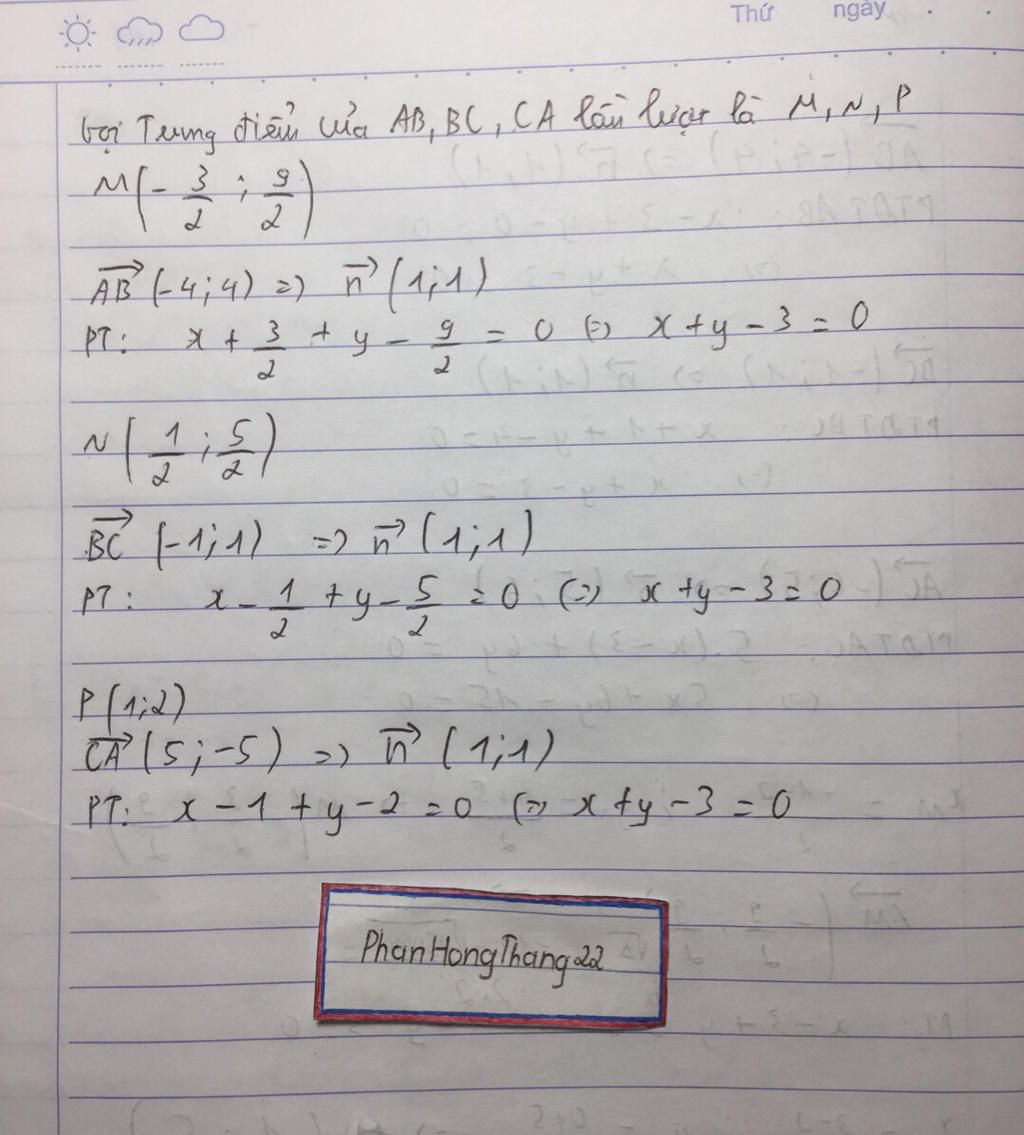 Thứ ngày
Gọi Trung điểm của AB, BC, CA lần lượt là M, N, P
M(-3/2 ; 9/2)
→AB (-4;4) => →n (1;1)
PT: x + 3/2 + y - 9/2 = 0 (=) x + y - 3 = 0
N(1/2 ; 5/2)
→BC (-1;1) => →n (1;1)
PT: x - 1/2 + y - 5/2 = 0 (=) x + y - 3 = 0
P(1;2)
→CA (5;-5) => →n (1;1)
PT: x - 1 + y - 2 = 0 (=) x + y - 3 = 0
PhanHongThang22